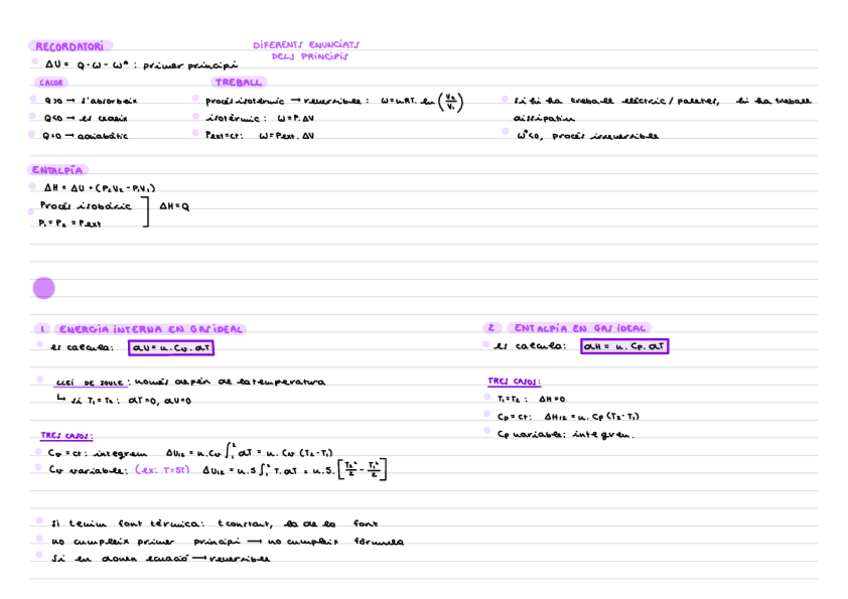 RECORDATORI
DIFERENTS ENUNCIATS
DELS PRINCIPIS
ΔU = Q-W-W* : primer principi
CALOR
TREBALL
Q>0 → s'absorbeix
Q<0 → es cedeix
Q=0 → adiabàtic
procés isotèrmic → reversible: W=nRT. ln (V₂/V₁)
isotèrmic: W=P.ΔV
Pext=ct: W=Pext.ΔV
Si hi ha treball elèctric/paletes, hi ha treball
dissipatiu
W*<0, procés irreversible
ENTALPÍA
ΔH = ΔU + (P₂V₂ - P₁V₁)
Procés isobàric
P₁ = P₂ = Pext
] ΔH=Q
1 ENERGIA INTERNA EN GAS IDEAL
es calcula: dU = n.Cv.dT
LLEI DE JOULE: només depèn de la temperatura
↳ si T₁=T₂: dT=0, dU=0
TRES CASOS:
Cv = ct: integrem ΔU₁₂ = n.Cv ∫₁² dT = n. Cv (T₂-T₁)
Cv variable: (ex: T=5T) ΔU₁₂ = n.5 ∫₁² T.dT = n.5. [T₂²/2 - T₁²/2]
2 ENTALPIA EN GAS IDEAL
es calcula: dH = n. Cp. dT
TRES CASOS:
T₁=T₂: ΔH=0
Cp=ct: ΔH₁₂ = n. Cp (T₂-T₁)
Cp variable: integrem.
Si tenim font tèrmica: t constant, la de la font
no cumpleix primer principi → no cumpleix fórmula
Si en donen equació → reversible